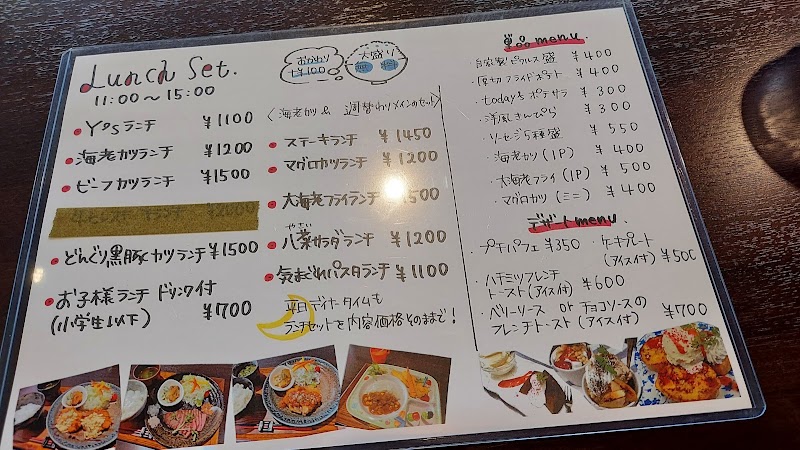 Lunch Set.
11:00～15:00
おかわり
+¥100
大盛り
〈海老カツ & 週替わりメインのセット〉
• Y's ランチ ¥1100
• 海老カツランチ ¥1200
• ビーフカツランチ ¥1500
• どんぐり黒豚カツランチ ¥1500
• お子様ランチ ドリンク付
(小学生以下) ¥700
• ステーキランチ ¥1450
• マグロカツランチ ¥1200
• 大海老フライランチ
やさい
• 八菜サラダランチ ¥1200
• 気まぐれパスタランチ ¥1100
平日ディナータイムも
ランチセットを内容価格そのままで!
単品menu
・自家製ピクルス盛 ¥400
・厚切フライドポテト ¥400
・today's ポテサラ ¥300
・洋風きんぴら ¥300
・ソーセージ5種盛 ¥550
・海老カツ(1P) ¥400
・大海老フライ(1P) ¥500
・マグロカツ(ミニ) ¥400
デザートmenu.
・プチパフェ ¥350
・ケーキプレート
(アイス付) ¥500
・ハチミツフレンチ
トースト(アイス付) ¥600
・ベリーソース or チョコソースの
フレンチトースト(アイス付) ¥700